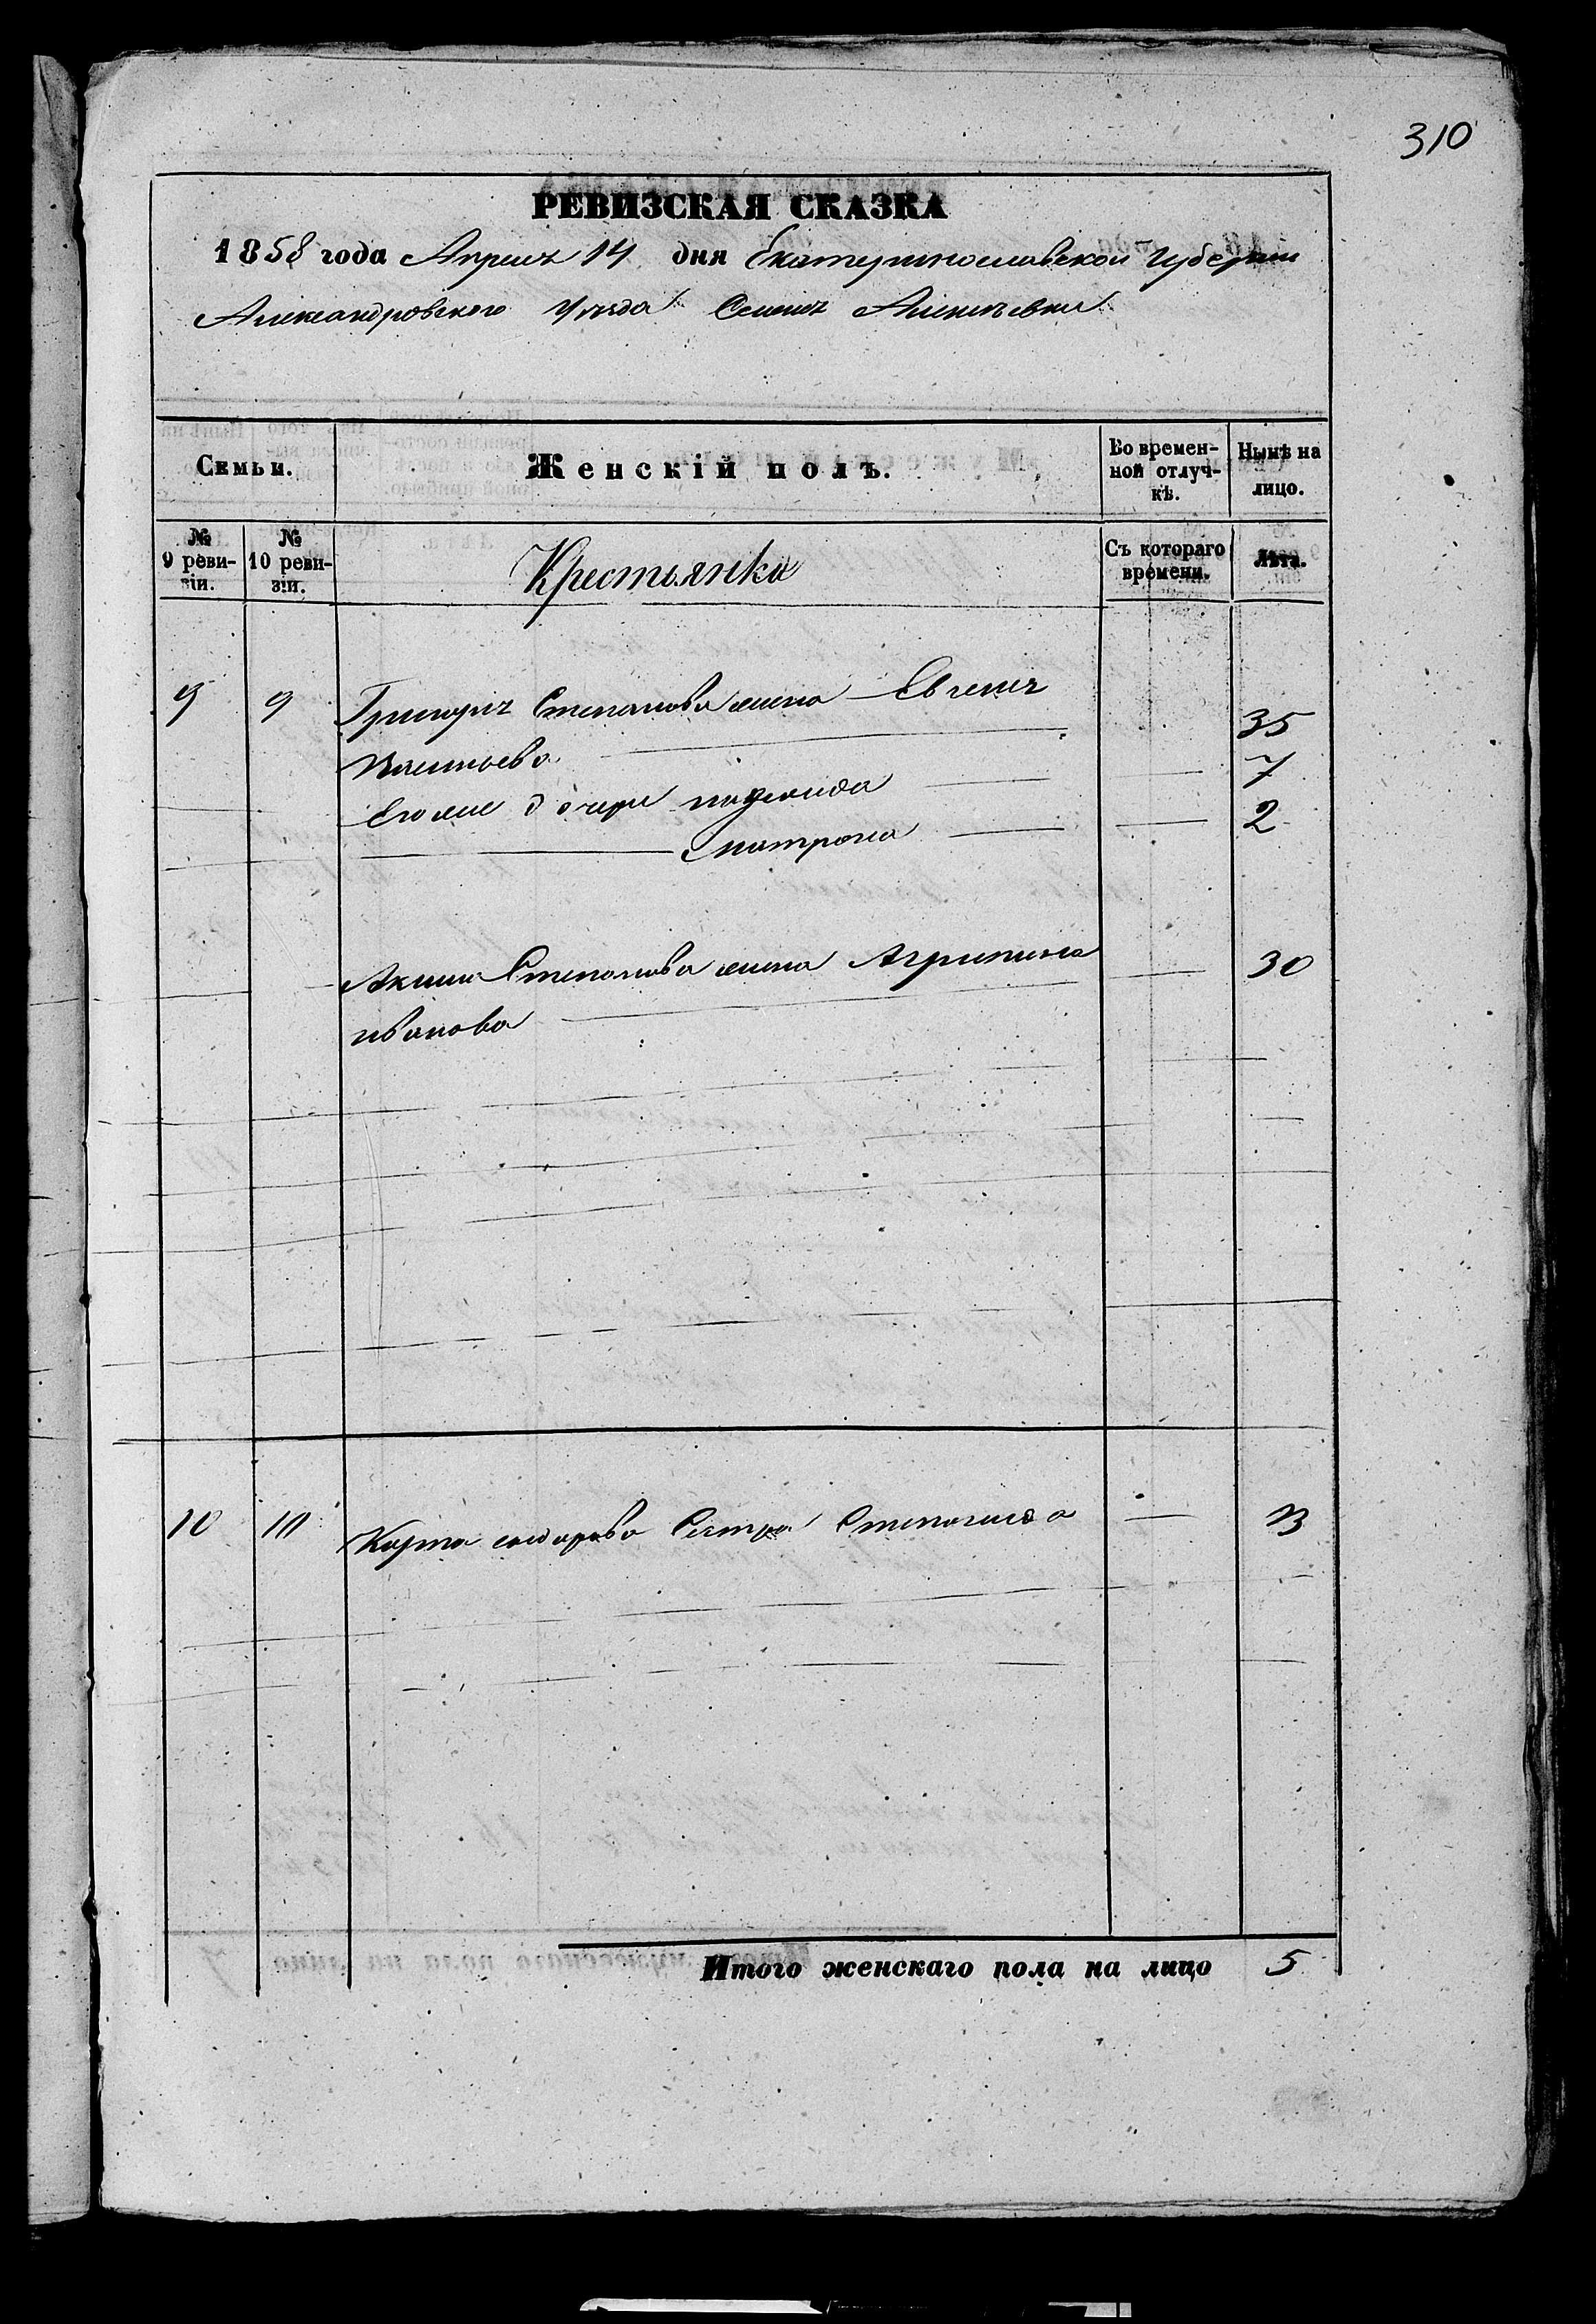 310
РЕВИЗСКАЯ СКАЗКА
1858 года Апреля 14 дня Екатеринославской Губернии
Александровского Уезда Селения Алексѣевки
Семьи.
Женскій полъ.
Во времен-
ной отлуч-
кѣ.
Нынѣ на
лицо.
№
9 реви-
зіи.
№
10 реви-
зіи.
Крестьянки
Съ котораго
времени.
Лѣта.
9 9 Григория Степанова жена Евгения 35
Его же дочери 7
Матрона 2
Акима Степанова жена Агрипина 30
иванова
10 10 Карпа Сестра Степанида
Итого женскаго пола на лицо 5